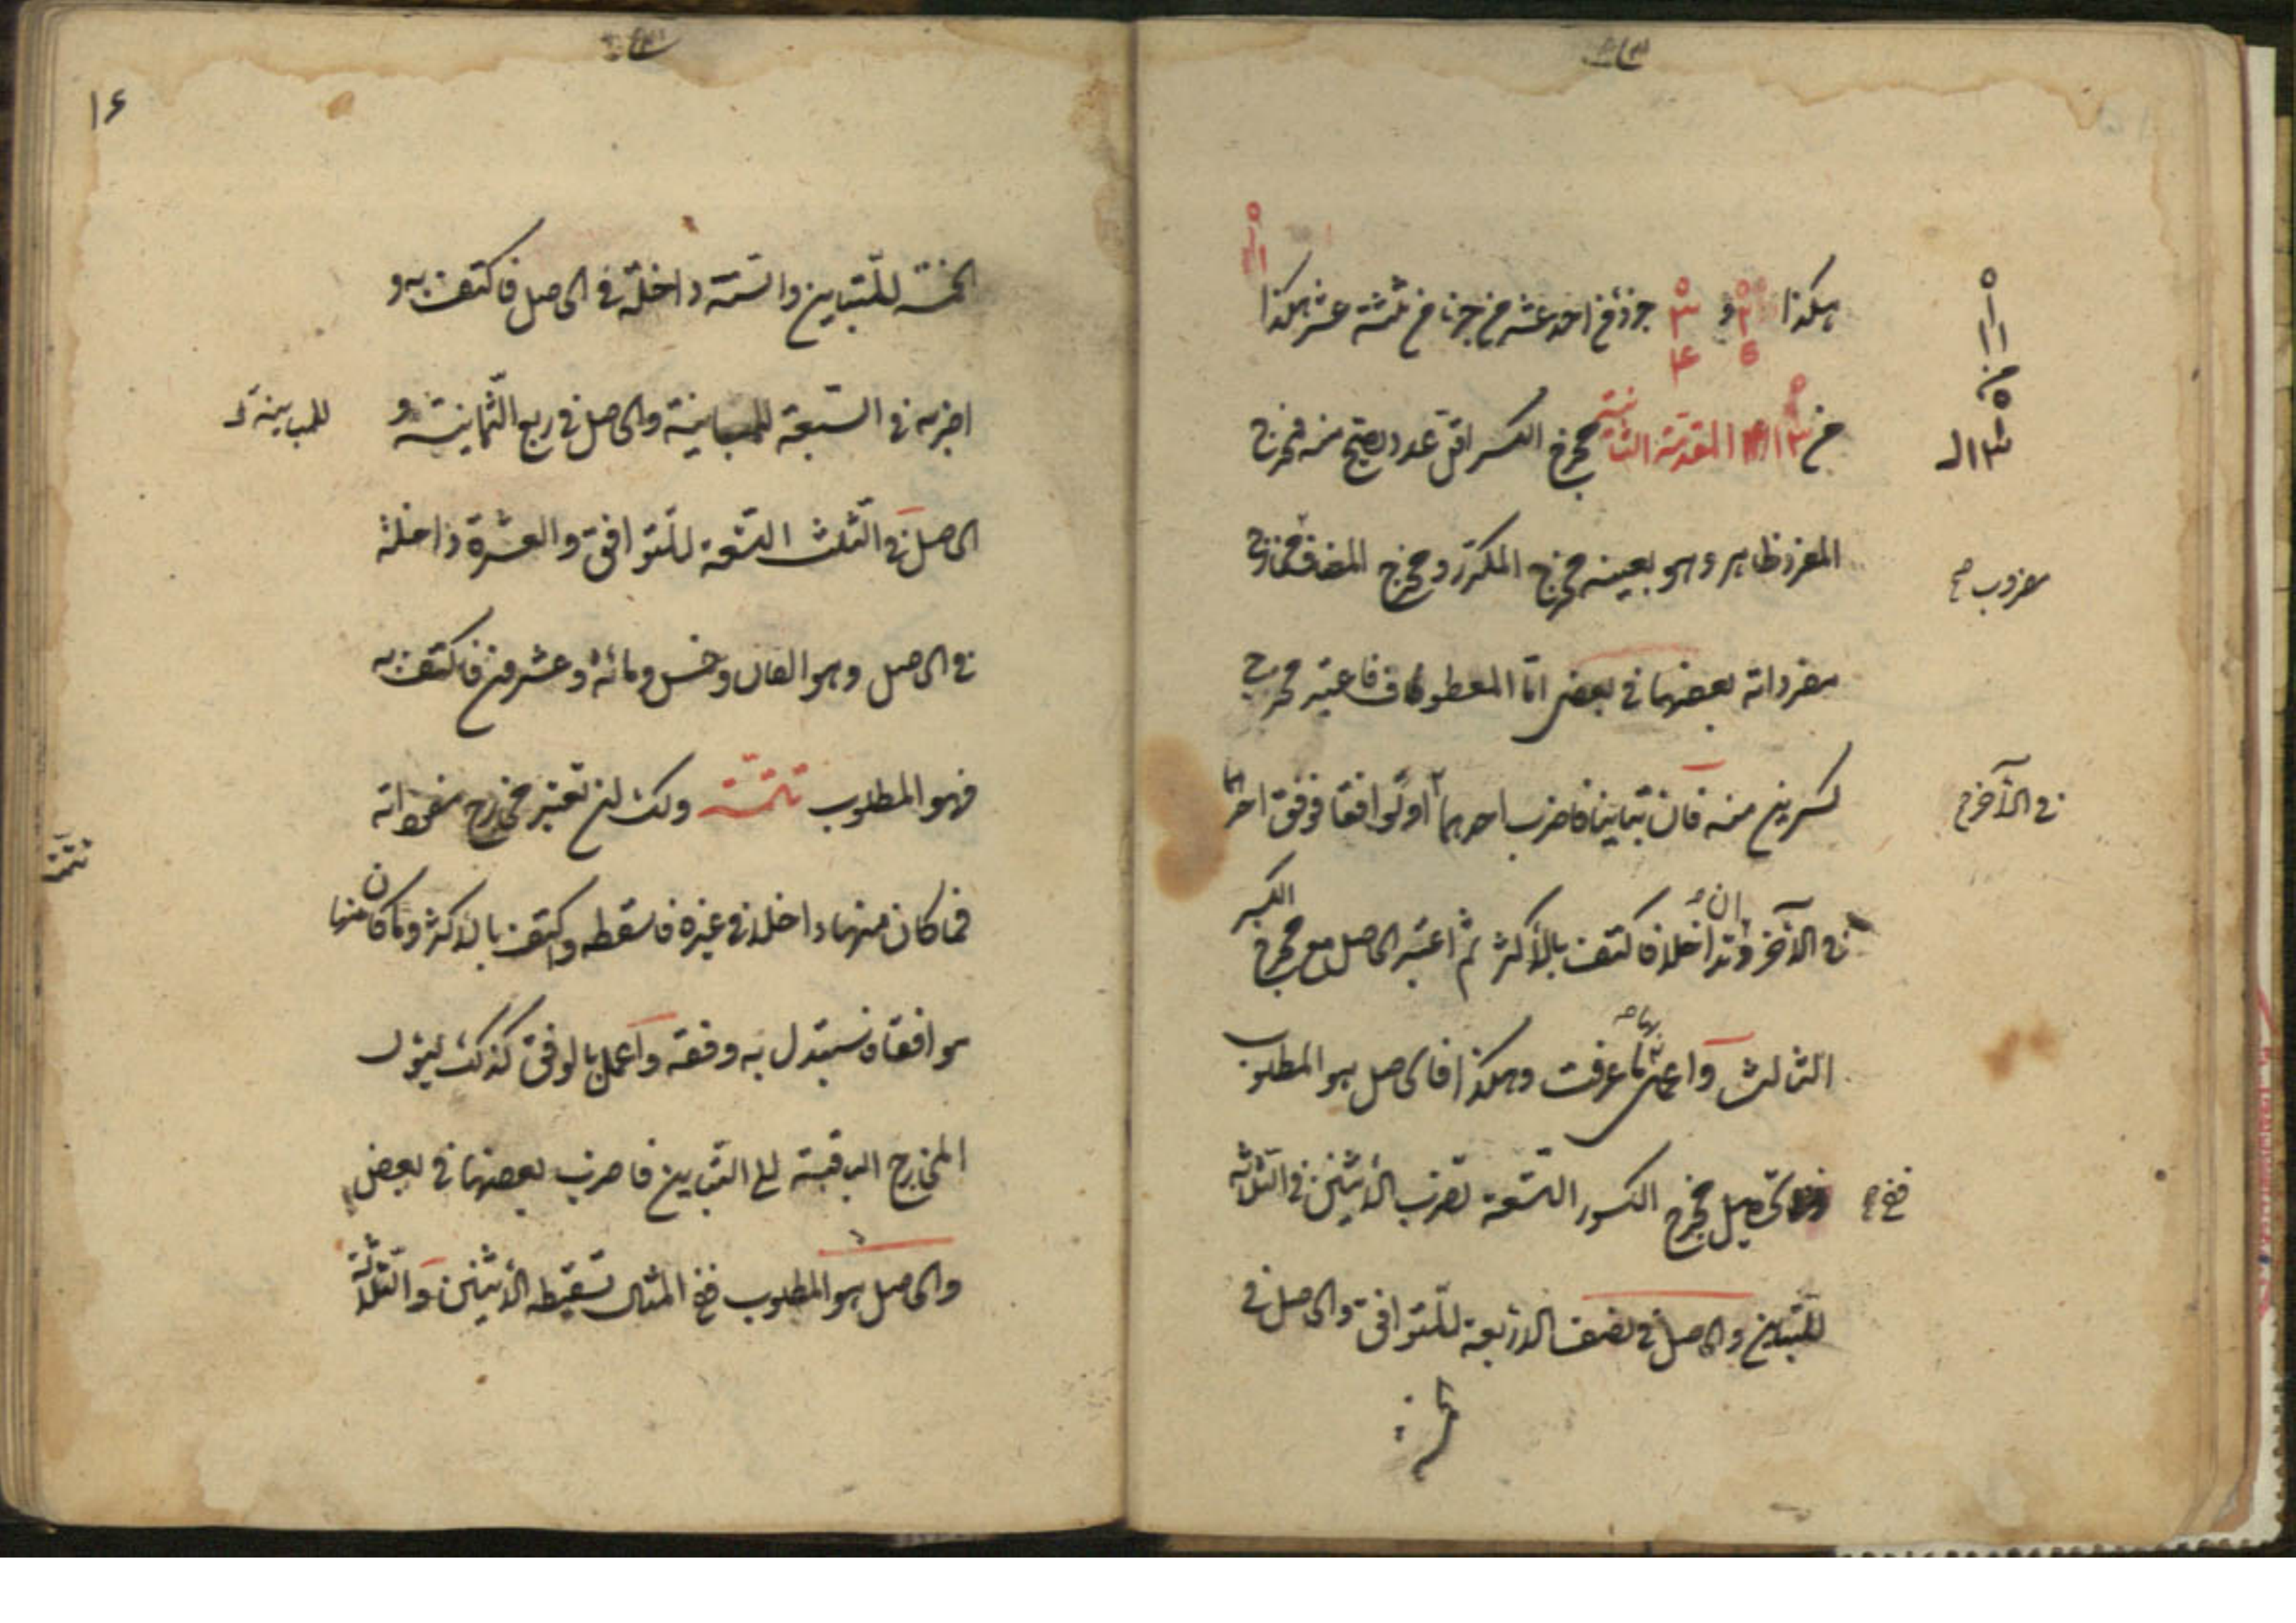 هكذا و جزء من احد عشر من جزء من ثلثة عشر هكذا
من المقدمة الثانية مخرج الكسر اقل عدد يصح منه فمخرج
المفرد ظاهر وهو بعينه مخرج المكرر ومخرج المضاف
مضروب
مفرداته بعضها في بعض اما المعطوف فاعتبر مخرجي
كسرين منه فان تباينا فاضرب احدهما او توافقا فوفق احدهما
في الآخر
في الآخر او تداخلا فاكتف بالأكثر ثم اعتبر الحاصل مع مخرج
الكسر
الثالث واعمل ما عرفت وهكذا فالحاصل هو المطلوب
ففي
تحصيل مخرج الكسور التسعة تضرب الاثنين في الثلاثة
للتباين والحاصل في نصف الاربعة للتوافق والحاصل في
١٦
الخمسة للتباين والستة داخلة في الحاصل فاكتف به و
اضربه في السبعة للمباينة والحاصل في ربع الثمانية و
للمباينة
الحاصل في الثلث التسعة للتوافق والعشرة داخلة
في الحاصل وهو الفان وخمس ومائة وعشرون فاكتف به
فهو المطلوب تتمة ولك ان تعتبر مخارج مفرداته
فما كان منها داخلا في غيره فاسقطه واكتف بالاكثر وما كان منها
موافقا فاستبدل به وفقه واعمل بالوفق كذلك ليؤل
المخارج الباقية الى التباين فاضرب بعضها في بعض
والحاصل هو المطلوب ففي المثال تسقط الاثنين والثلاثة